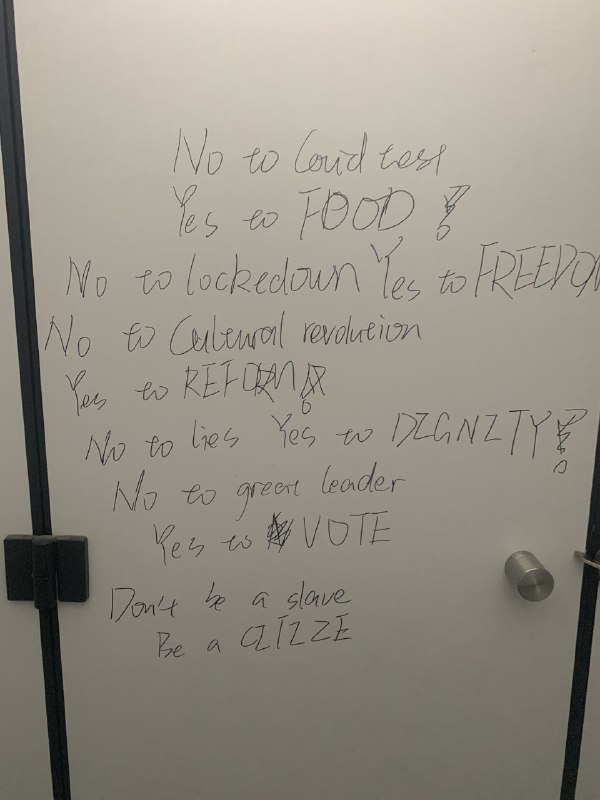 No to Covid test
Yes to FOOD!
No to lockedown Yes to FREEDOM
No to Cultural revolution
Yes to REFORM!
No to lies Yes to DIGNITY!
No to great leader
Yes to VOTE
Don't be a slave
Be a CITIZE